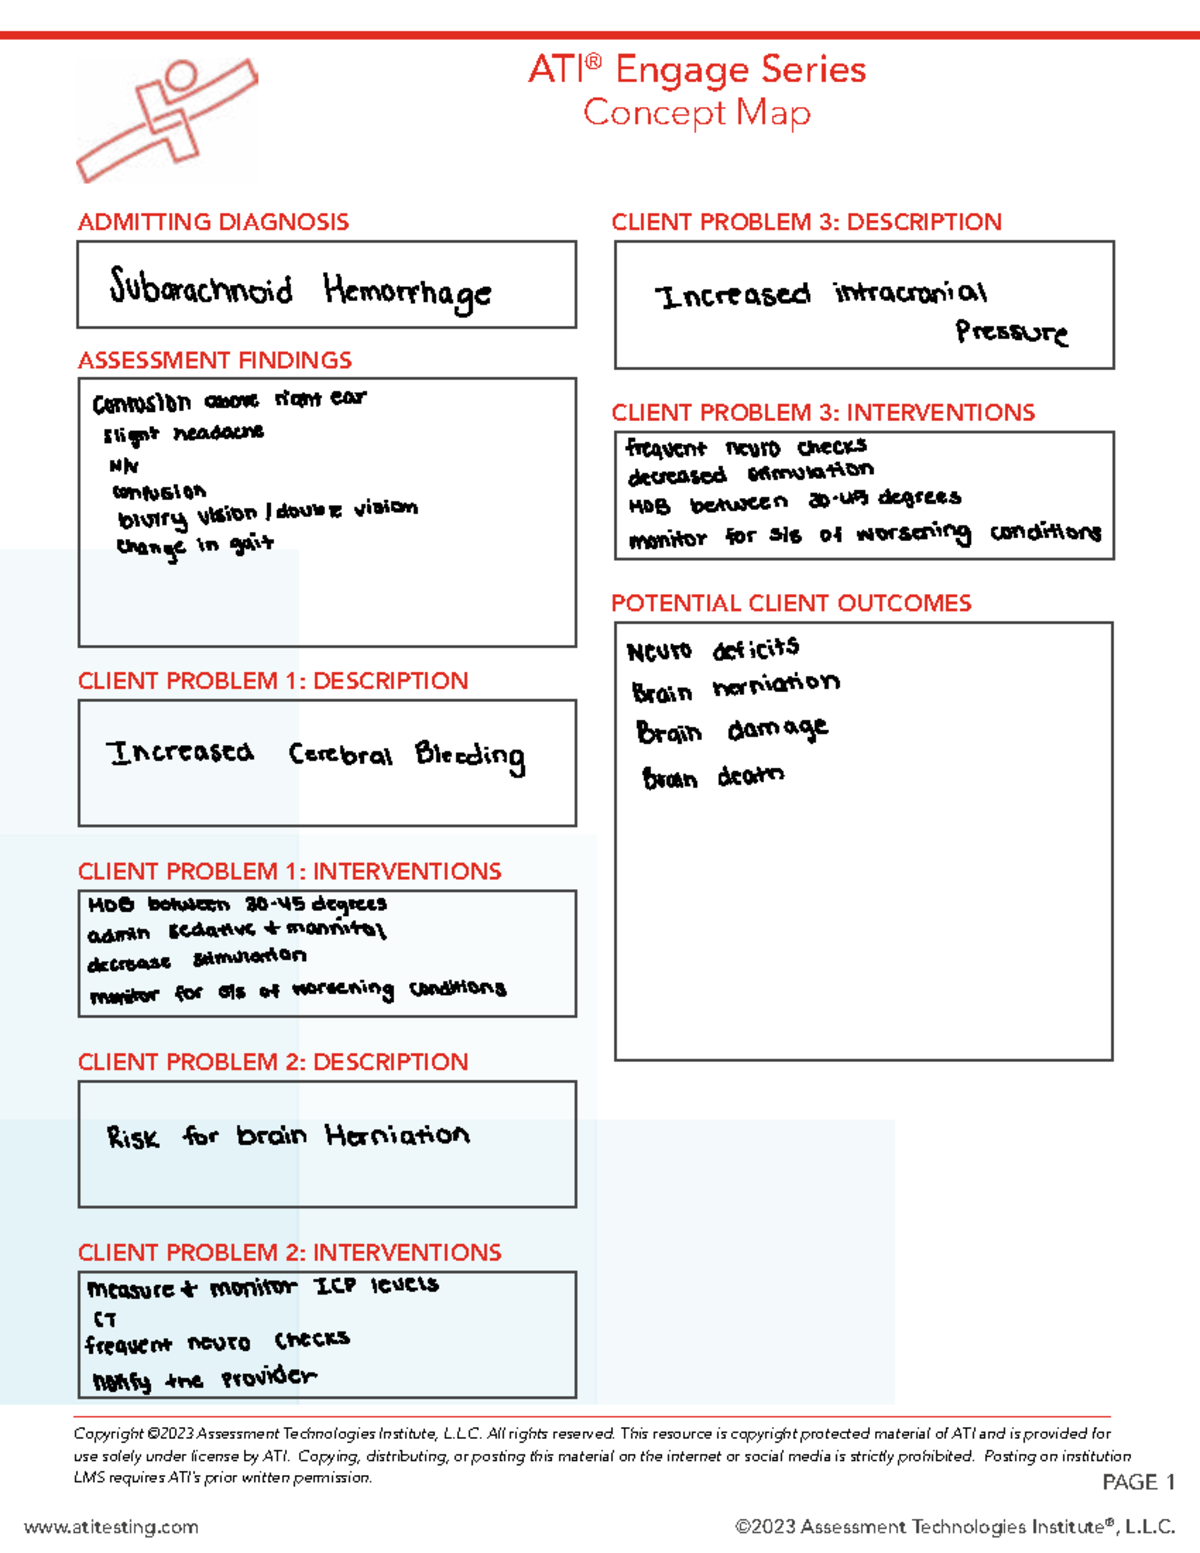 ATI® Engage Series
Concept Map
ADMITTING DIAGNOSIS
Subarachnoid Hemorrhage
ASSESSMENT FINDINGS
Contusion above right ear
slight headache
N/V
confusion
blurry vision / double vision
change in gait
CLIENT PROBLEM 1: DESCRIPTION
Increased Cerebral Bleeding
CLIENT PROBLEM 1: INTERVENTIONS
HOB between 30-45 degrees
admin sedative + mannitol
decrease stimulation
monitor for s/s of worsening conditions
CLIENT PROBLEM 2: DESCRIPTION
Risk for brain Herniation
CLIENT PROBLEM 2: INTERVENTIONS
measure + monitor ICP levels
CT
frequent neuro checks
notify the provider
CLIENT PROBLEM 3: DESCRIPTION
Increased intracranial
Pressure
CLIENT PROBLEM 3: INTERVENTIONS
frequent neuro checks
decreased stimulation
HOB between 30-45 degrees
monitor for s/s of worsening conditions
POTENTIAL CLIENT OUTCOMES
Neuro deficits
Brain herniation
Brain damage
Brain death
Copyright ©2023 Assessment Technologies Institute, L.L.C. All rights reserved. This resource is copyright protected material of ATI and is provided for
use solely under license by ATI. Copying, distributing, or posting this material on the internet or social media is strictly prohibited. Posting on institution
LMS requires ATI's prior written permission.
PAGE 1
www.atitesting.com
©2023 Assessment Technologies Institute®, L.L.C.